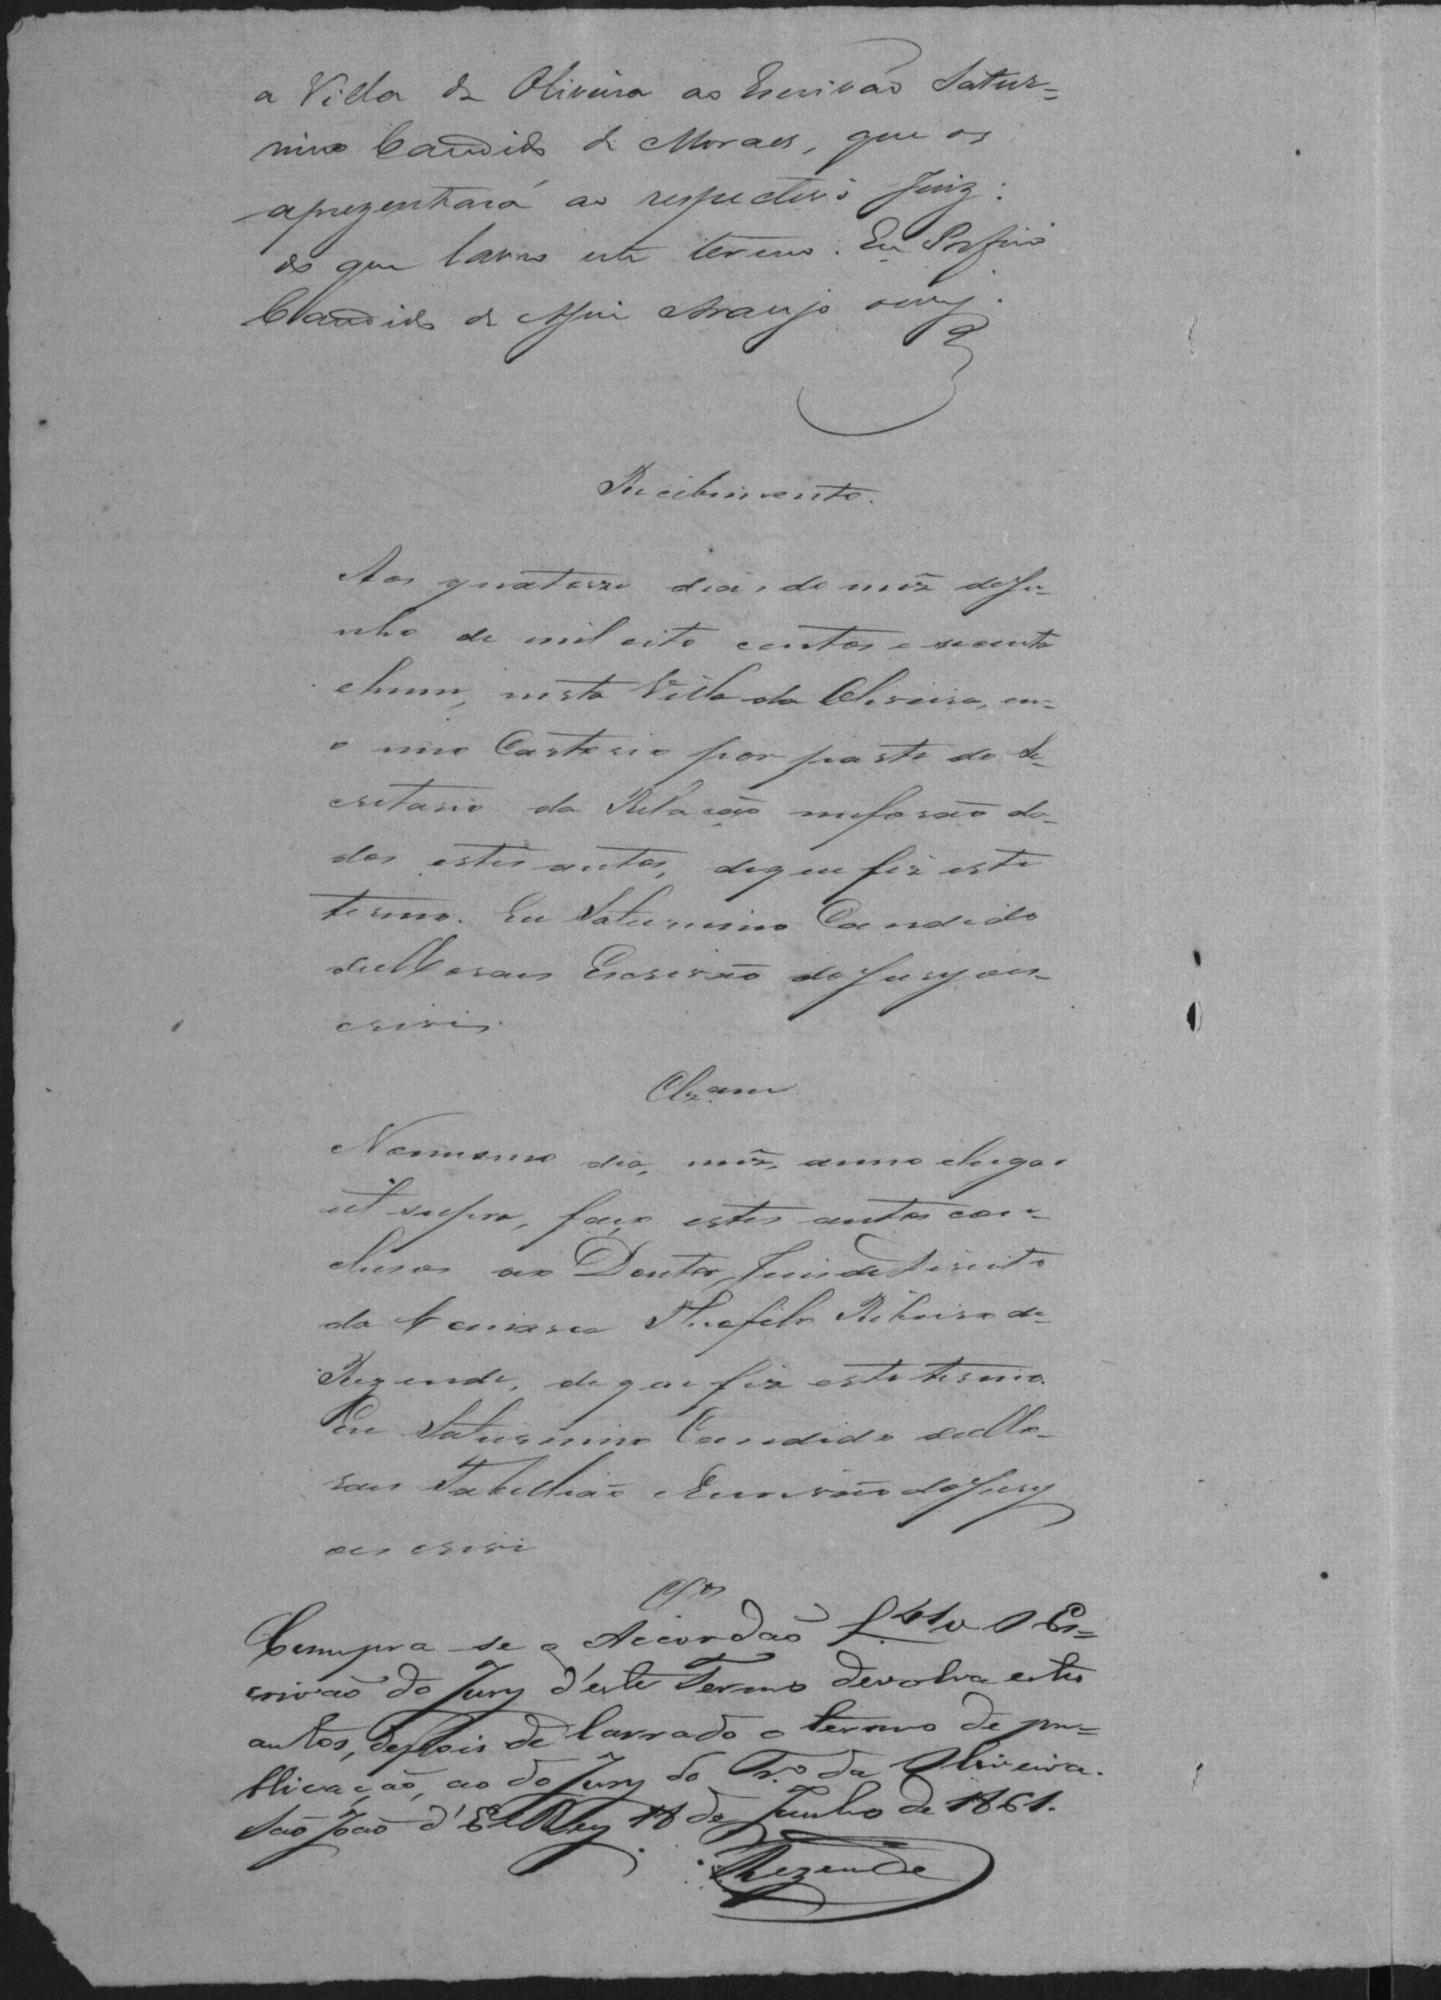 a Villa de Oliveira ao Escrivão Satur=
nino Candido de Moraes, que os
aprezentará ao respectivo Juiz:
do que lavro este termo. Eu Porfirio
Candido de Araujo
Recebimento.
Aos quatorze dias do mêz de Ju-
nho de mil oito centos e secenta
ehum, nesta Villa da Oliveira, em-
o meo Cartorio por parte do Se-
cretario da Relação meforão da-
dos estes autos, deque fiz este
termo. Eu Saturnino Candido
deMoraes Escrivão do Jury oes-
crivi.
Clzam
Nomesmo dia, mêz, anno elugar
ut supra, faço estes autos con-
clusos ao Doutor Juis de Direito
da Comarca Theofilo Ribeiro de
Rezende, deque fiz este termo.
Eu Saturnino Candido deMo-
raes Tabellião Escrivão do Jury
oes crivi
Clsos
Cumpra se o Accordão f. 41 v O Es=
crivão do Jury d'este Termo devolva estes
autos, depois de lavrado o termo de pu=
blicação, ao do Jury do Tr.o da Oliveira.
São João d'El Rey 18 de Junho de 1861.
Rezende